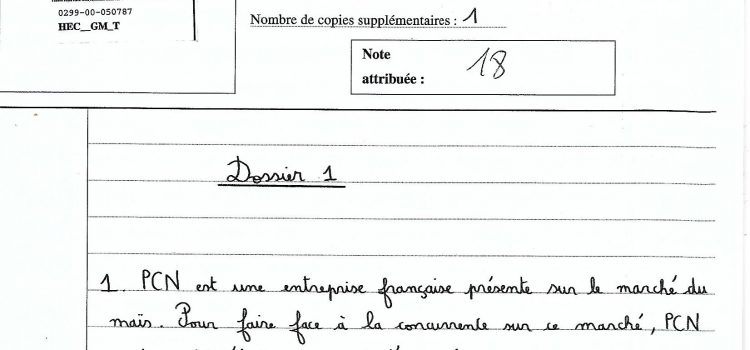 0299-00-050787
HEC__GM_T
Nombre de copies supplémentaires : 1
Note
attribuée :
18
Dossier 1
1. PCN est une entreprise française présente sur le marché du
maïs. Pour faire face à la concurrente sur ce marché, PCN